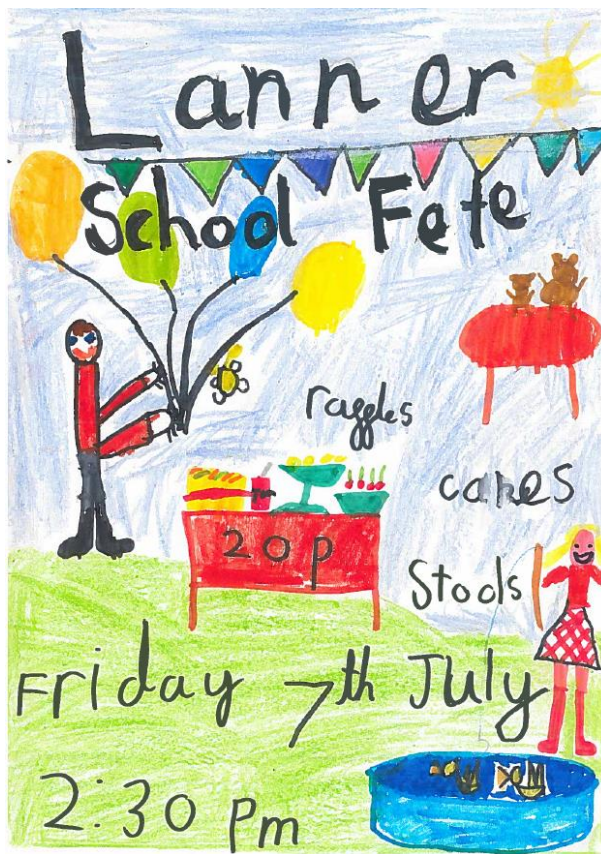 Lanner
School Fete
raggles
cakes
20p
Stools
Friday 7th July
2:30 pm